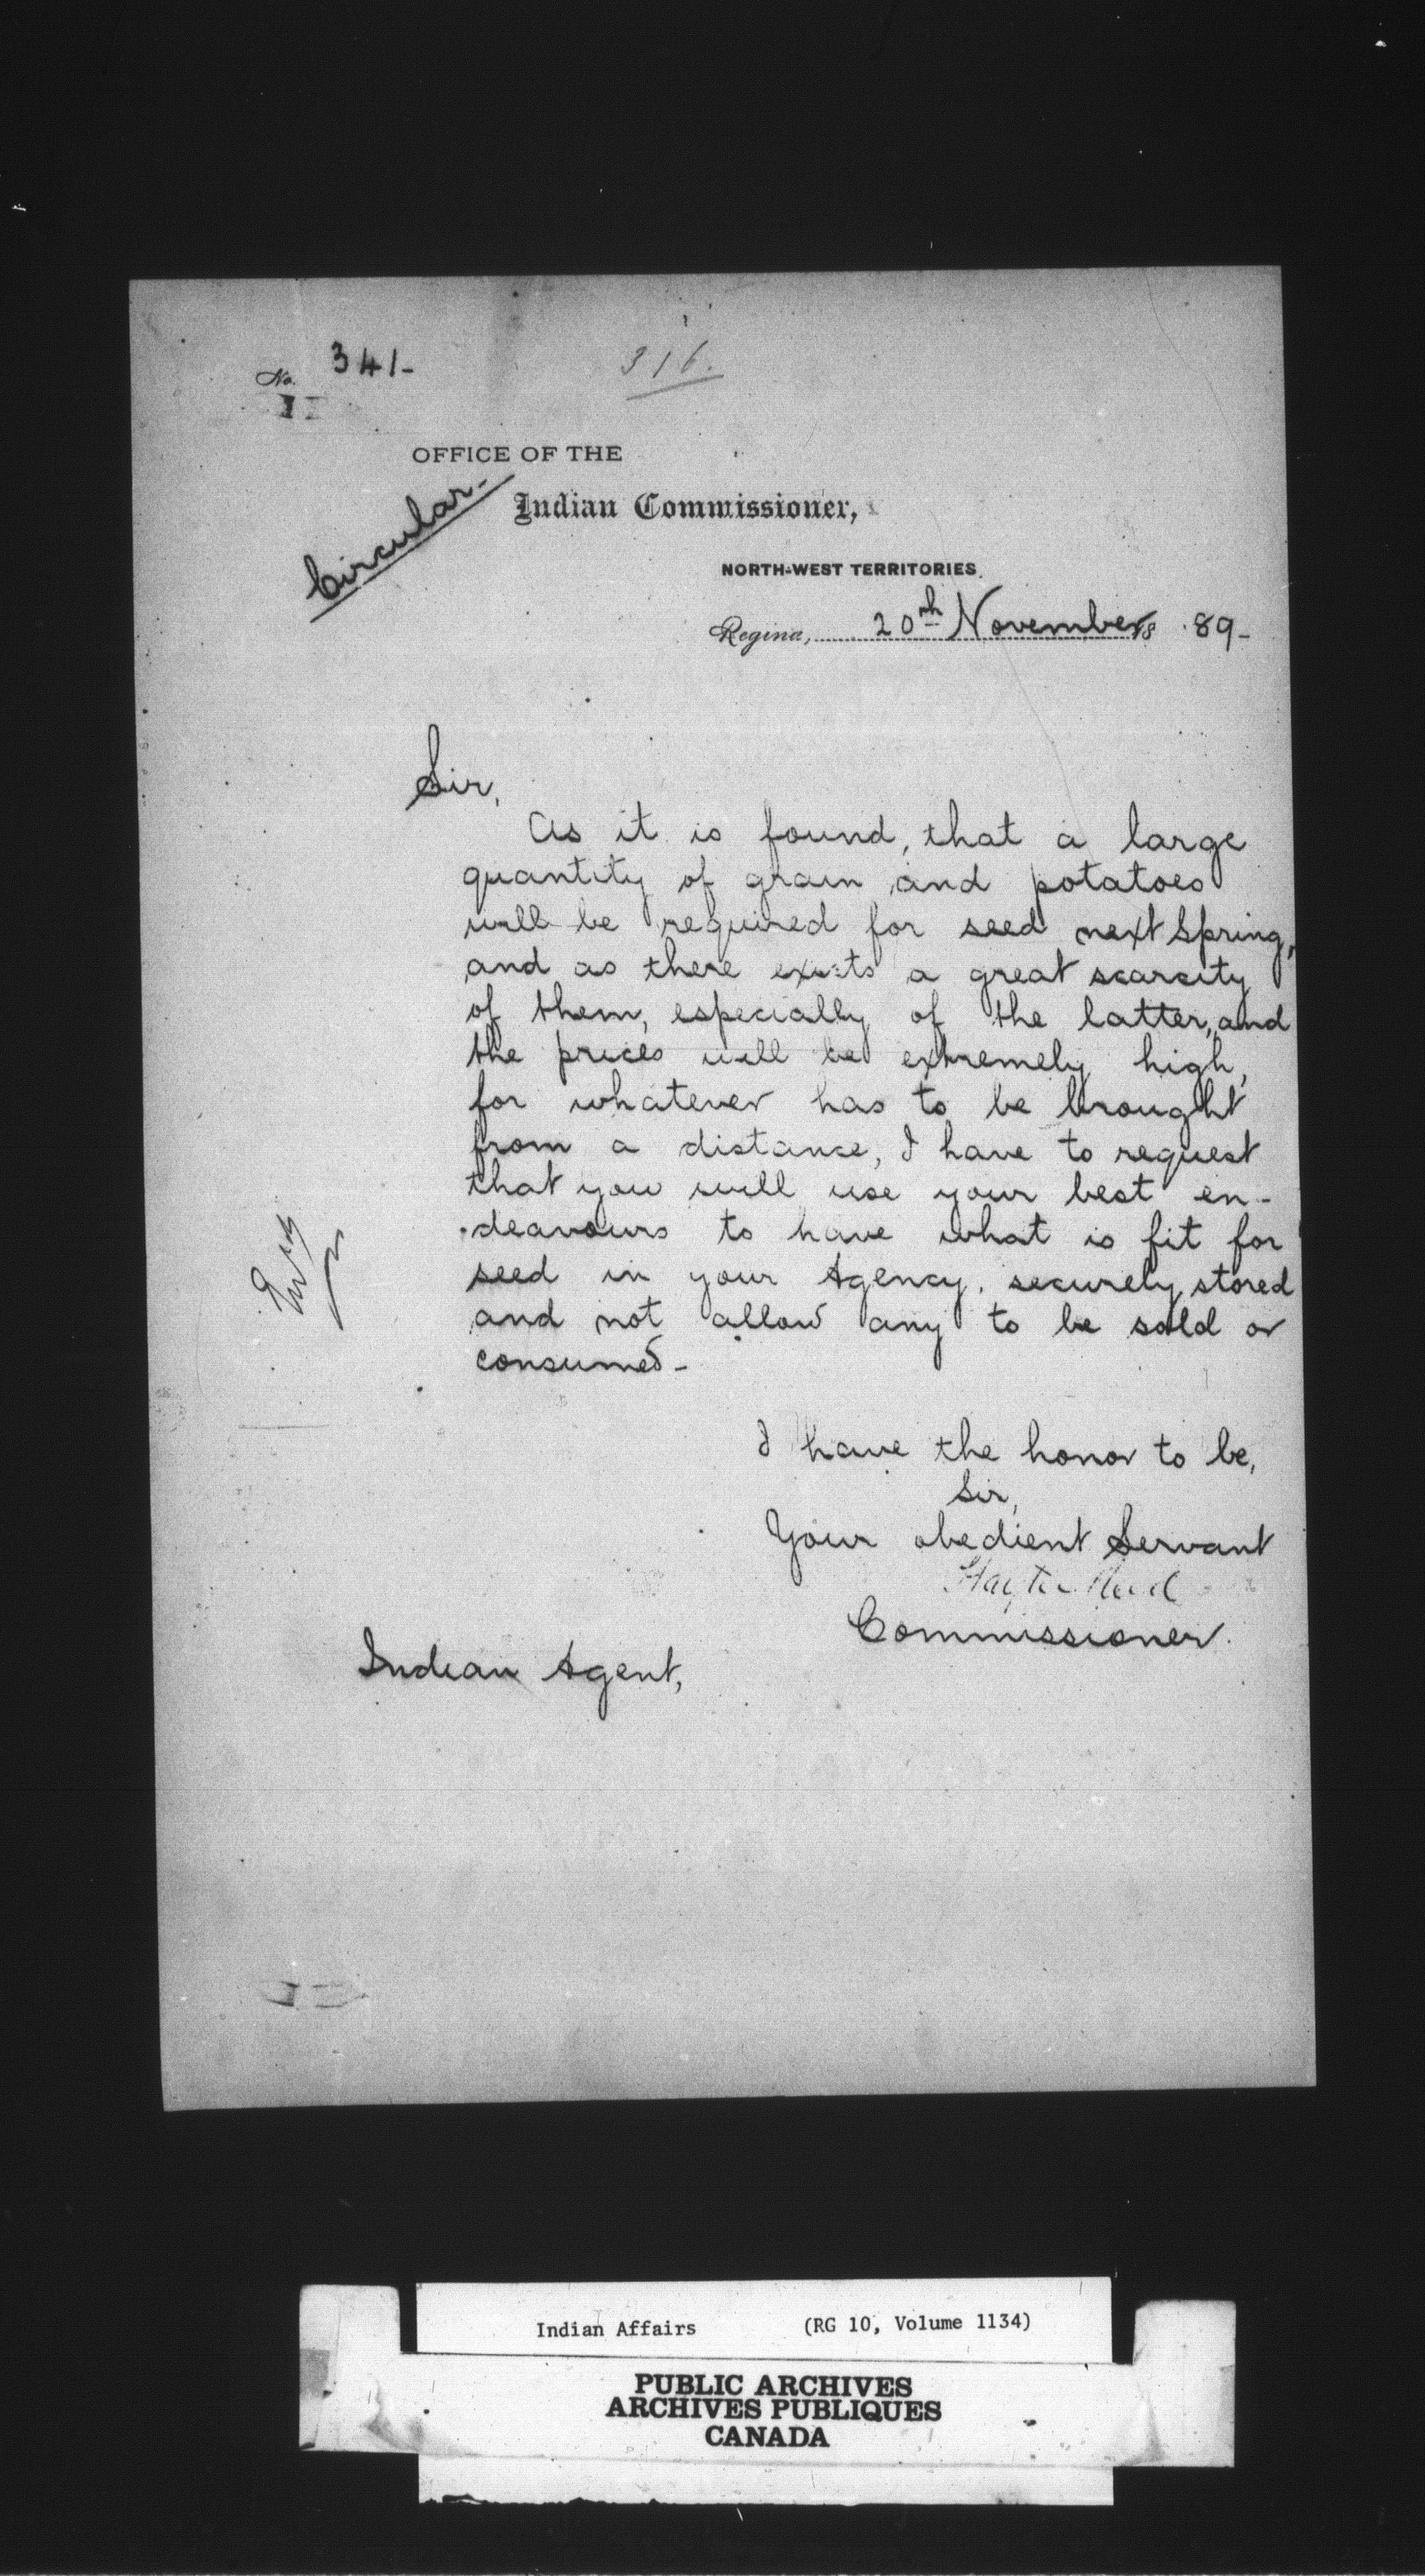 No. 341-
316.
OFFICE OF THE
Indian Commissioner,
Circular-
NORTH-WEST TERRITORIES.
Regina, 20th November 18 89-
Sir,
As it is found, that a large
quantity of grain and potatoes
will be required for seed next Spring,
and as there exists a great scarcity
of them, especially of the latter, and
the prices will be extremely high,
for whatever has to be brought
from a distance, I have to request
that you will use your best en-
deavours to have what is fit for
seed in your Agency, securely stored
and not allow any to be sold or
consumed-
I have the honor to be,
Sir,
Your obedient Servant
Hayter Reed
Commissioner.
Indian Agent,
Indian Affairs (RG 10, Volume 1134)
PUBLIC ARCHIVES
ARCHIVES PUBLIQUES
CANADA